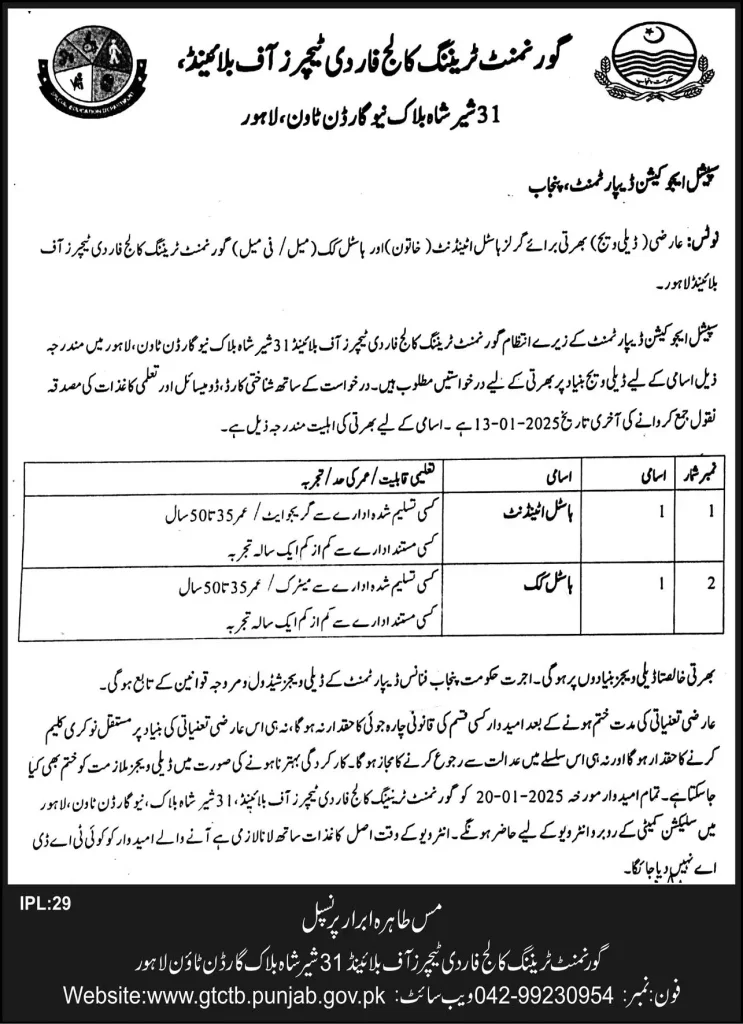 گورنمنٹ ٹریننگ کالج فار دی ٹیچرز آف بلائینڈ،
31 شیر شاہ بلاک نیو گارڈن ٹاون، لاہور
SPECIAL EDUCATION DEPARTMENT
سپیشل ایجوکیشن ڈیپارٹمنٹ، پنجاب
نوٹس: عارضی (ڈیلی ویج) بھرتی برائے گرلز ہاسٹل اٹینڈنٹ (خاتون) اور ہاسٹل کک (میل / فی میل) گورنمنٹ ٹریننگ کالج فار دی ٹیچرز آف
بلائینڈ لاہور۔
سپیشل ایجوکیشن ڈیپارٹمنٹ کے زیرے انتظام گورنمنٹ ٹریننگ کالج فار دی ٹیچرز آف بلائینڈ 31 شیر شاہ بلاک نیو گارڈن ٹاون، لاہور میں مندرجہ
ذیل اسامی کے لیے ڈیلی ویج بنیاد پر بھرتی کے لیے درخواستیں مطلوب ہیں۔ درخواست کے ساتھ شناختی کارڈ، ڈومیسائل اور تعلمی کاغذات کی مصدقہ
نقول جمع کروانے کی آخری تاریخ 2025-01-13 ہے ۔ اسامی کے لیے بھرتی کی اہلیت مندرجہ ذیل ہے۔
نمبر شمار اسامی اسامی تعلیمی قابلیت / عمر کی حد / تجربہ
1 1 ہاسٹل اٹینڈنٹ کسی تسلیم شدہ ادارے سے گریجوایٹ / عمر 35 تا 50 سال
کسی مستند ادارے سے کم از کم ایک سالہ تجربہ
2 1 ہاسٹل کک کسی تسلیم شدہ ادارے سے میٹرک / عمر 35 تا 50 سال
کسی مستند ادارے سے کم از کم ایک سالہ تجربہ
بھرتی خالصتا ڈیلی ویجز بنیادوں پر ہو گی۔ اجرت حکومت پنجاب فنانس ڈیپارٹمنٹ کے ڈیلی ویجز شیڈول و مروجہ قوانین کے تابع ہو گی۔
عارضی تعنیاتی کی مدت ختم ہونے کے بعد امیدوار کسی قسم کی قانونی چارہ جوئی کا حقدار نہ ہو گا، نہ ہی اس عارضی تعنیاتی کی بنیاد پر مستقل نوکری کلیم
کرنے کا حقدار ہو گا اور نہ ہی اس سلسلے میں عدالت سے رجوع کرنے کا مجاز ہو گا۔ کارکردگی بہتر نا ہونے کی صورت میں ڈیلی ویجز ملازمت کو ختم بھی کیا
جا سکتا ہے۔ تمام امیدوار مورخہ 2025-01-20 کو گورنمنٹ ٹریننگ کالج فار دی ٹیچرز آف بلائینڈ، 31 شیر شاہ بلاک، نیو گارڈن ٹاون، لاہور
میں سلیکشن کمیٹی کے روبرو انٹرویو کے لیے حاضر ہونگے۔ انٹرویو کے وقت اصل کاغذات ساتھ لانا لازمی ہے آنے والے امیدوار کو کوئی ٹی اے ڈی
اے نہیں دیا جائگا۔
IPL:29
مس طاہرہ ابرار پرنسپل
گورنمنٹ ٹریننگ کالج فار دی ٹیچرز آف بلائینڈ 31 شیر شاہ بلاک گارڈن ٹاؤن لاہور
فون نمبر: 042-99230954 ویب سائٹ: Website:www.gtctb.punjab.gov.pk